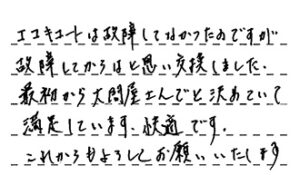 エコキュートは故障してなかったのですが
故障してからはと思い交換しました.
最初から大問屋さんでと決めていて
満足しています、快適です。
これからもよろしくお願いいたします